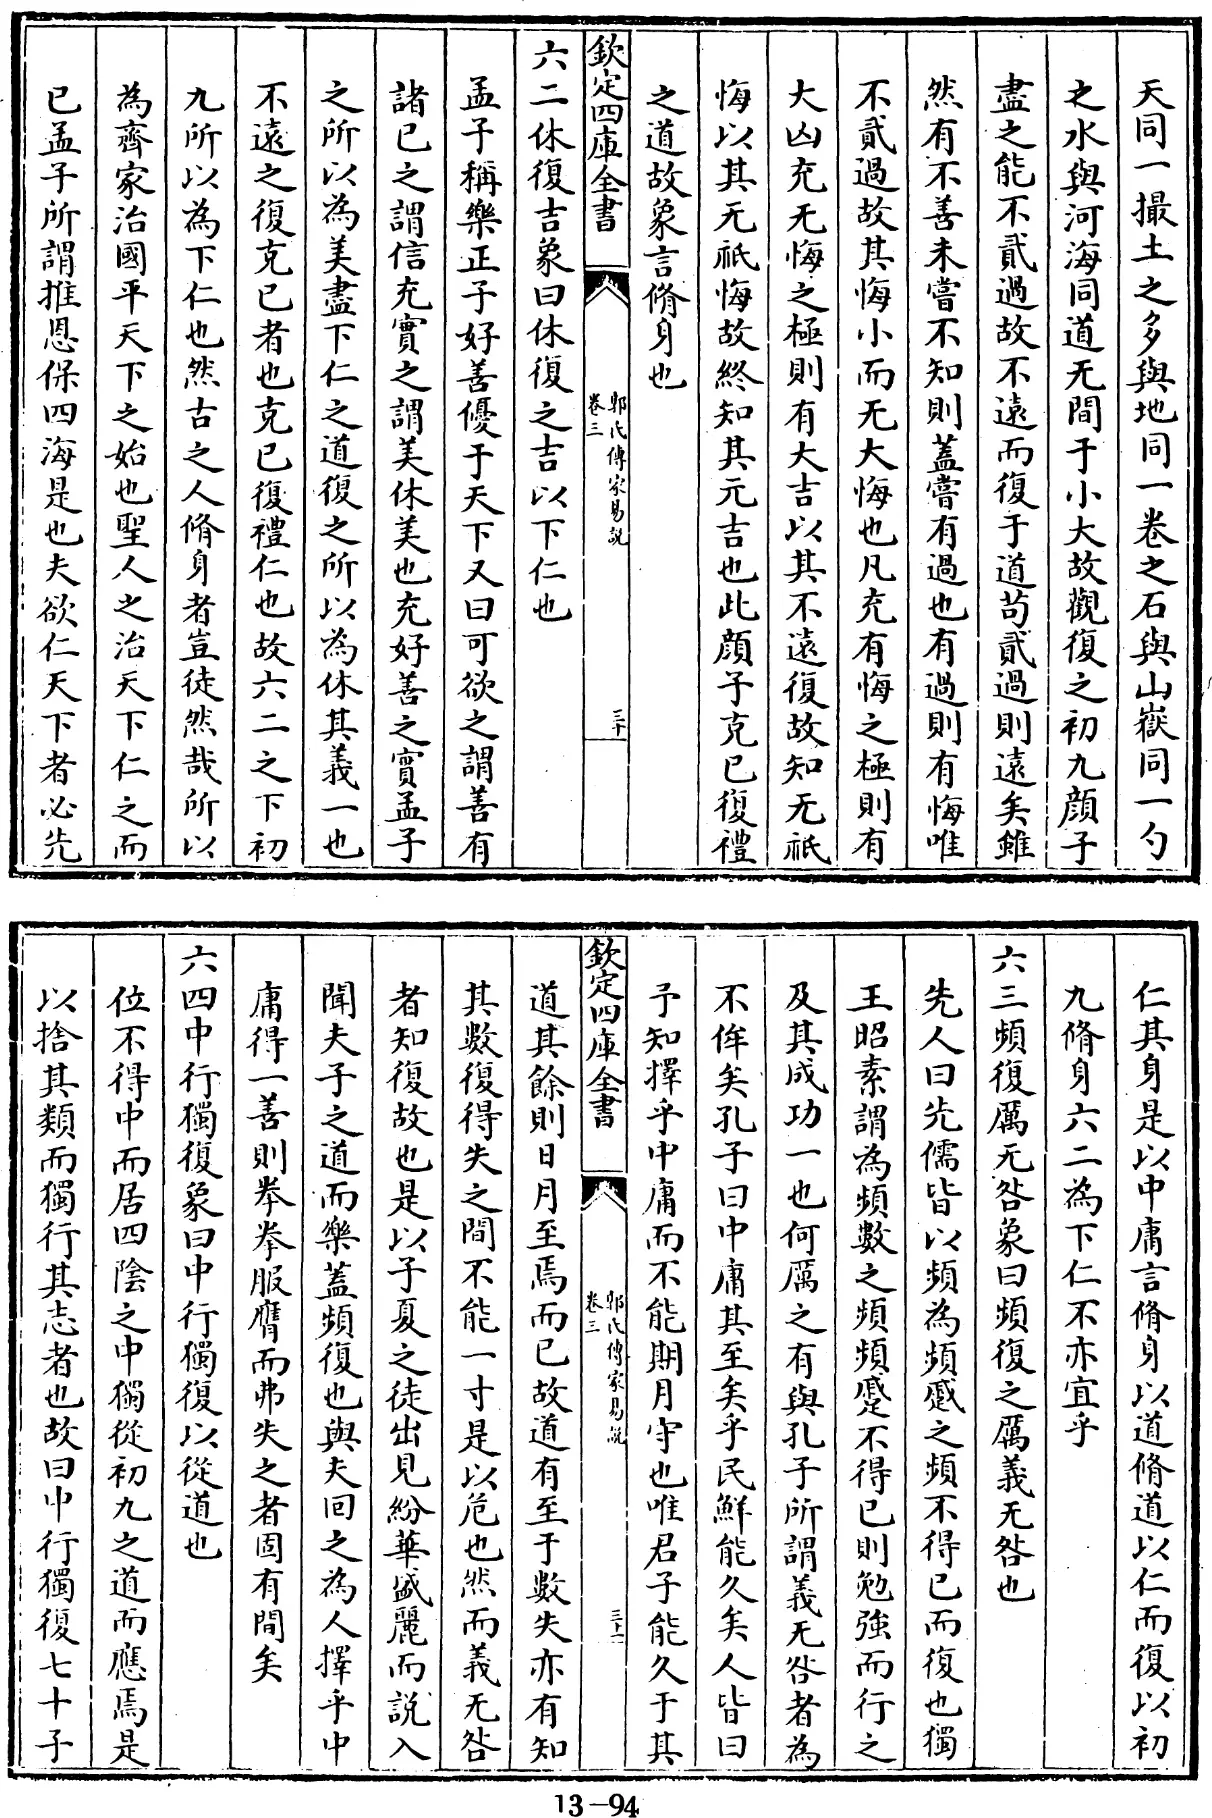 天同一撮土之多與地同一卷之石與山嶽同一勺
之水與河海同道无間于小大故觀復之初九顔子
盡之能不貳過故不遠而復于道苟貳過則遠矣雖
然有不善未嘗不知則蓋嘗有過也有過則有悔唯
不貳過故其悔小而无大悔也凡充有悔之極則有
大凶充无悔之極則有大吉以其不遠復故知无祇
悔以其无祇悔故終知其元吉也此顔子克已復禮
之道故象言脩身也
欽定四庫全書
郭氏傳家易說
卷三
三十
六二休復吉象曰休復之吉以下仁也
孟子稱樂正子好善優于天下又曰可欲之謂善有
諸已之謂信充實之謂美休美也充好善之實孟子
之所以為美盡下仁之道復之所以為休其義一也
不遠之復克已者也克已復禮仁也故六二之下初
九所以為下仁也然古之人脩身者豈徒然哉所以
為齊家治國平天下之始也聖人之治天下仁之而
已孟子所謂推恩保四海是也夫欲仁天下者必先
仁其身是以中庸言脩身以道脩道以仁而復以初
九脩身六二為下仁不亦宜乎
六三頻復厲无咎象曰頻復之厲義无咎也
先人曰先儒皆以頻為頻慼之頻不得已而復也獨
王昭素謂為頻數之頻頻蹙不得已則勉強而行之
及其成功一也何厲之有與孔子所謂義无咎者為
不侔矣孔子曰中庸其至矣乎民鮮能久矣人皆曰
予知擇乎中庸而不能期月守也唯君子能久于其
欽定四庫全書
郭氏傳家易說
卷三
三十一
道其餘則日月至焉而已故道有至于數失亦有知
其數復得失之間不能一寸是以危也然而義无咎
者知復故也是以子夏之徒出見紛華盛麗而説入
聞夫子之道而樂蓋頻復也與夫回之為人擇乎中
庸得一善則拳拳服膺而弗失之者固有間矣
六四中行獨復象曰中行獨復以從道也
位不得中而居四陰之中獨從初九之道而應焉是
以捨其類而獨行其志者也故曰中行獨復七十子
13-94